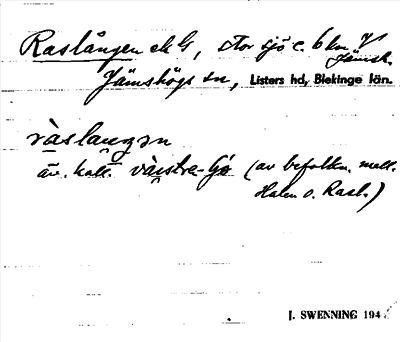 Raslången ek G, stor sjö c. 6 km N
Jämsh.
Jämshögs sn, Listers hd, Blekinge län.
ràslaŋgən
äv. kall. västre-sjö (av befolkn. mell.
Halen o. Rasl.)
J. SWENNING 194